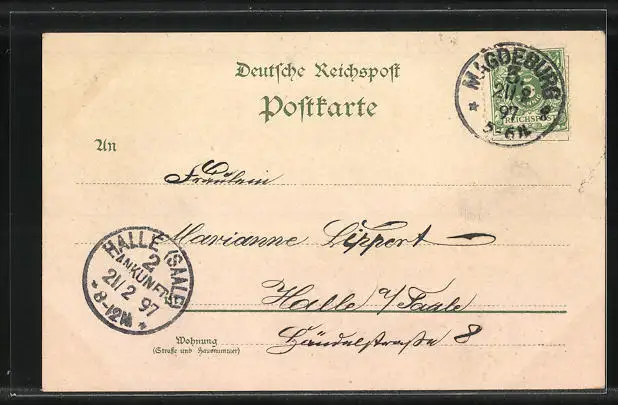 Deutsche Reichspost
Postkarte
MAGDEBURG
3
21/2
97
5-6N.
REICHSPOST
An
Fräulein
Marianne Lippert
HALLE (SAALE)
2
ANKUNFT
21/2 97
8-12N.
Halle a/Saale
Händelstraße 8
Wohnung
(Straße und Hausnummer)